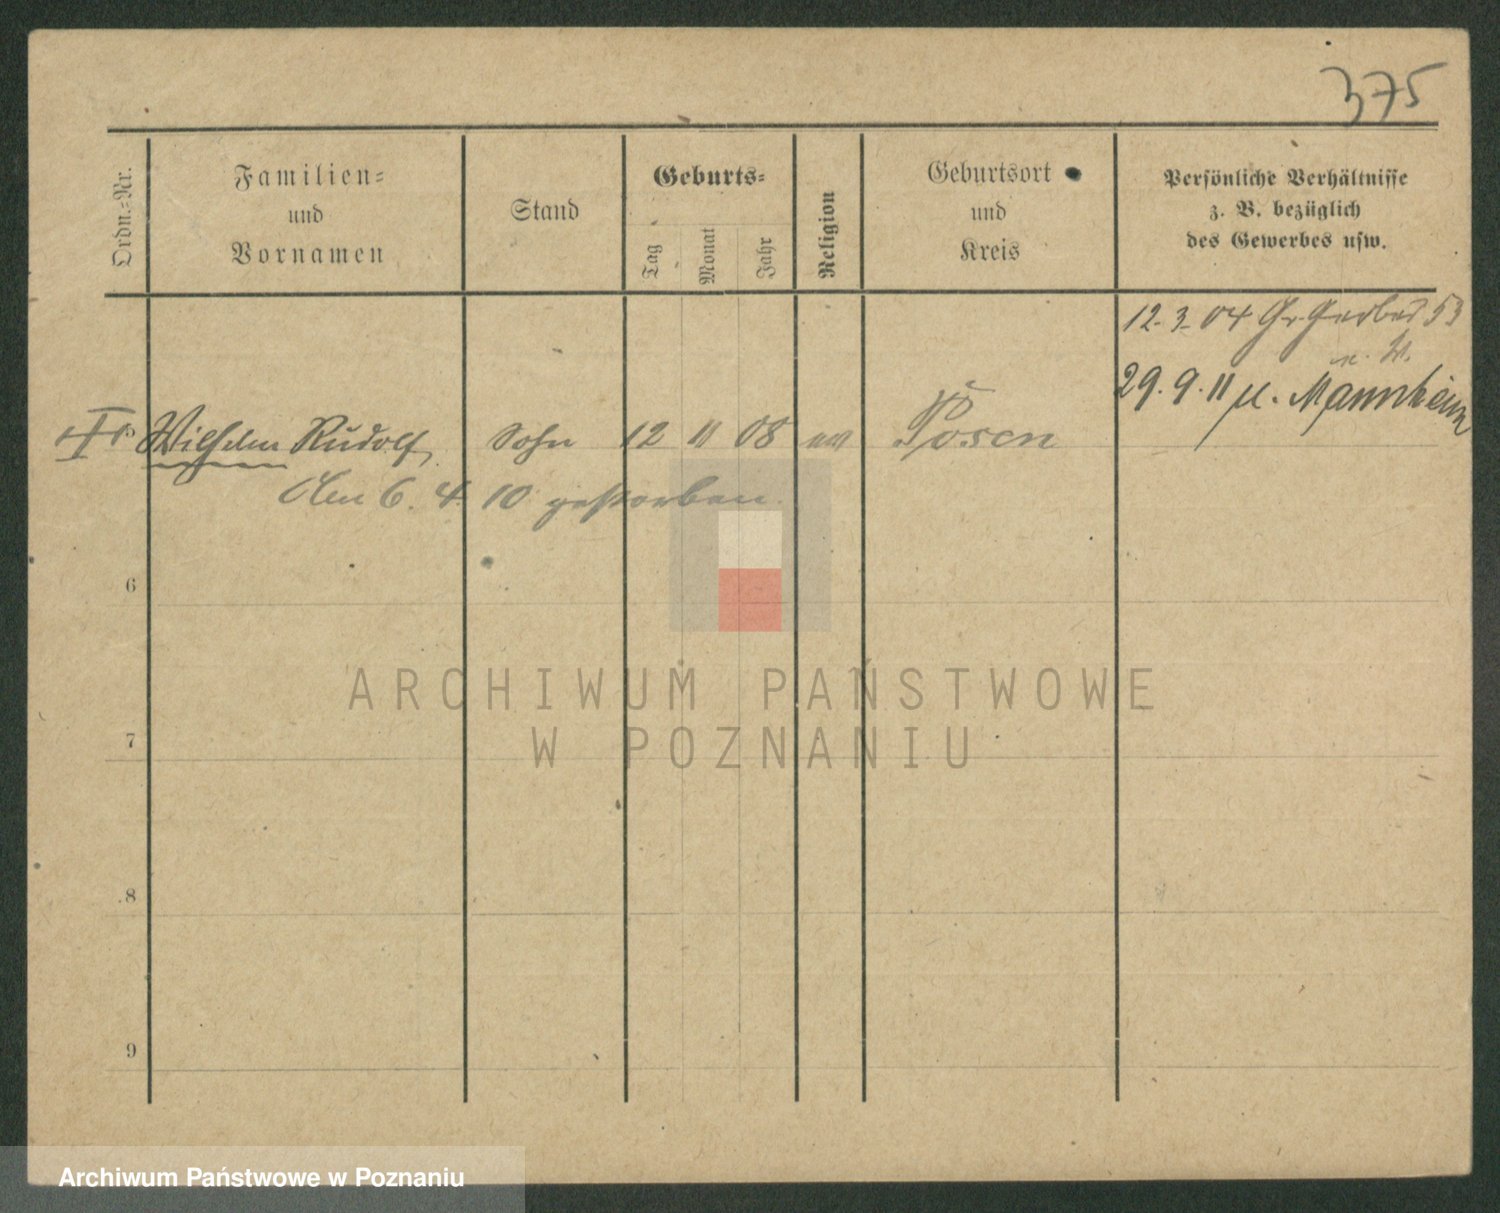 375
Ordn.-Nr.
Familien-
und
Vornamen
Stand
Geburts-
Tag
Monat
Jahr
Religion
Geburtsort
und
Kreis
Persönliche Verhältnisse
z. B. bezüglich
des Gewerbes usw.
12.3.04 Gr. Gerber 53
29.9.11 n. Mannheim
5 Wilhelm Rudolf, Sohn 12 11 08 ev Posen
Am 6. 4. 10 gestorben.
6
7
8
9
ARCHIWUM PAŃSTWOWE
W POZNANIU
Archiwum Państwowe w Poznaniu